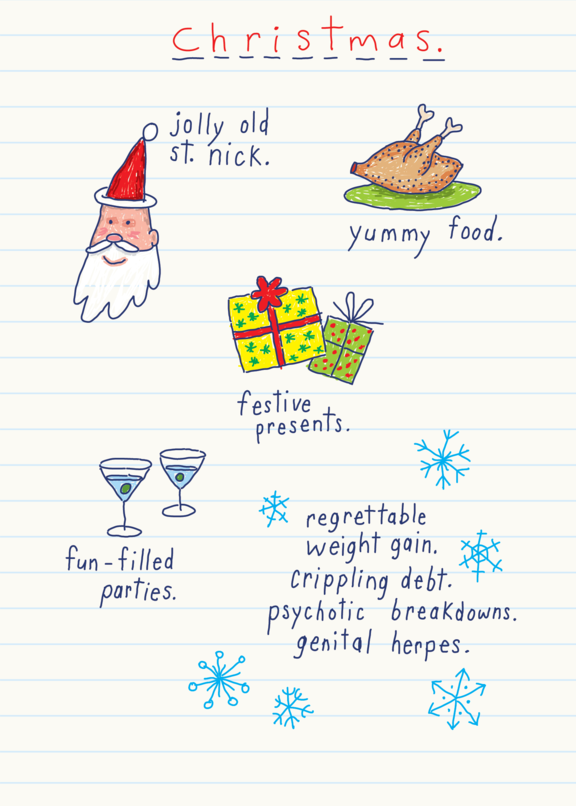 Christmas.
jolly old
st. nick.
yummy food.
festive
presents.
fun-filled
parties.
regrettable
weight gain.
crippling debt.
psychotic breakdowns.
genital herpes.